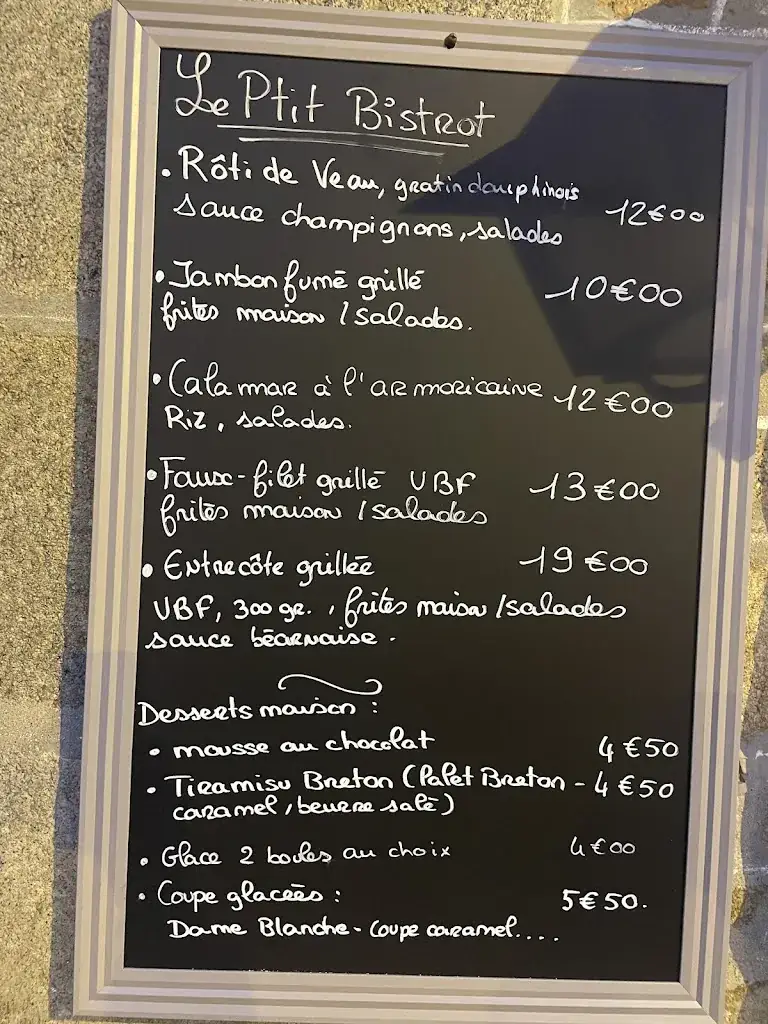 Le Ptit Bistrot
• Rôti de Veau, gratin dauphinois 12€00
sauce champignons, salades
• Jambon fumé grillé 10€00
frites maison / salades.
• Calamar à l'armoricaine 12€00
Riz, salades.
• Faux-filet grillé VBF 13€00
frites maison / salades
• Entrecôte grillée 19€00
VBF, 300 gr., frites maison / salades
sauce béarnaise.
Desserts maison :
• mousse au chocolat 4€50
• Tiramisu Breton (Palet Breton - 4€50
caramel, beurre salé)
• Glace 2 boules au choix 4€00
• Coupe glacées : 5€50.
Dame Blanche - Coupe caramel....